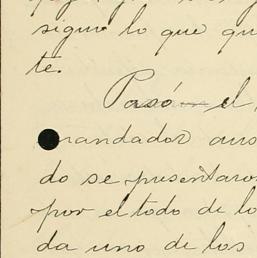 sigue lo que qu
te.
Pasó el
mandador aus
do se presentaron
por el todo de lo
da uno de los